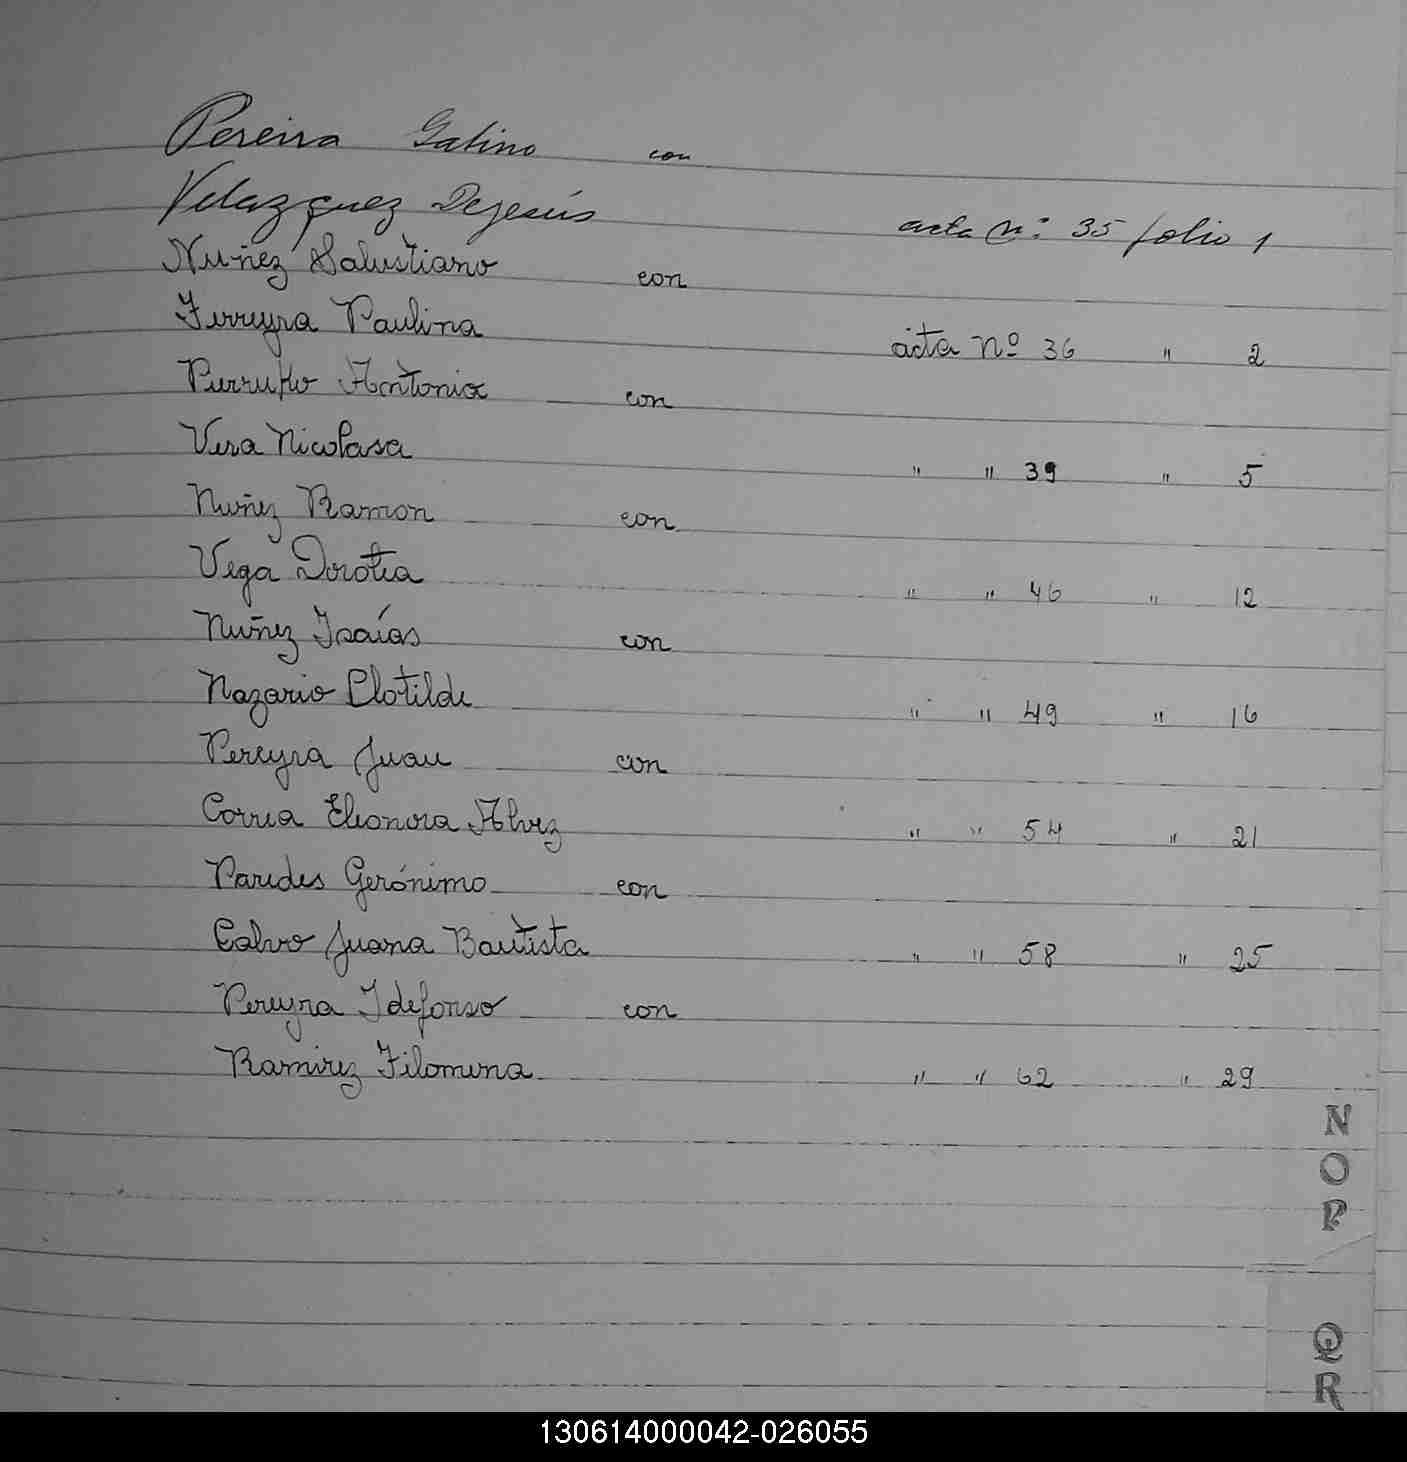 Pereira Gabino con
Velazquez Dejesús acta Nº 35 folio 1
Nuñez Salustiano con
Ferreyra Paulina acta Nº 36 " 2
Antonia con
Vera Nicolasa " " 39 " 5
Nuñez Ramon con
Vega Dorotea " " 46 " 12
Nuñez Isaías con
Nazario Clotilde " " 49 " 16
Pereyra Juan con
Correa Eleonora Alvez " " 54 " 21
Paredes Gerónimo con
Calvo Juana Bautista " " 58 " 25
Pereyra Ildefonso con
Ramirez Filomena " " 62 " 29
N
O
P
Q
R
130614000042-026055